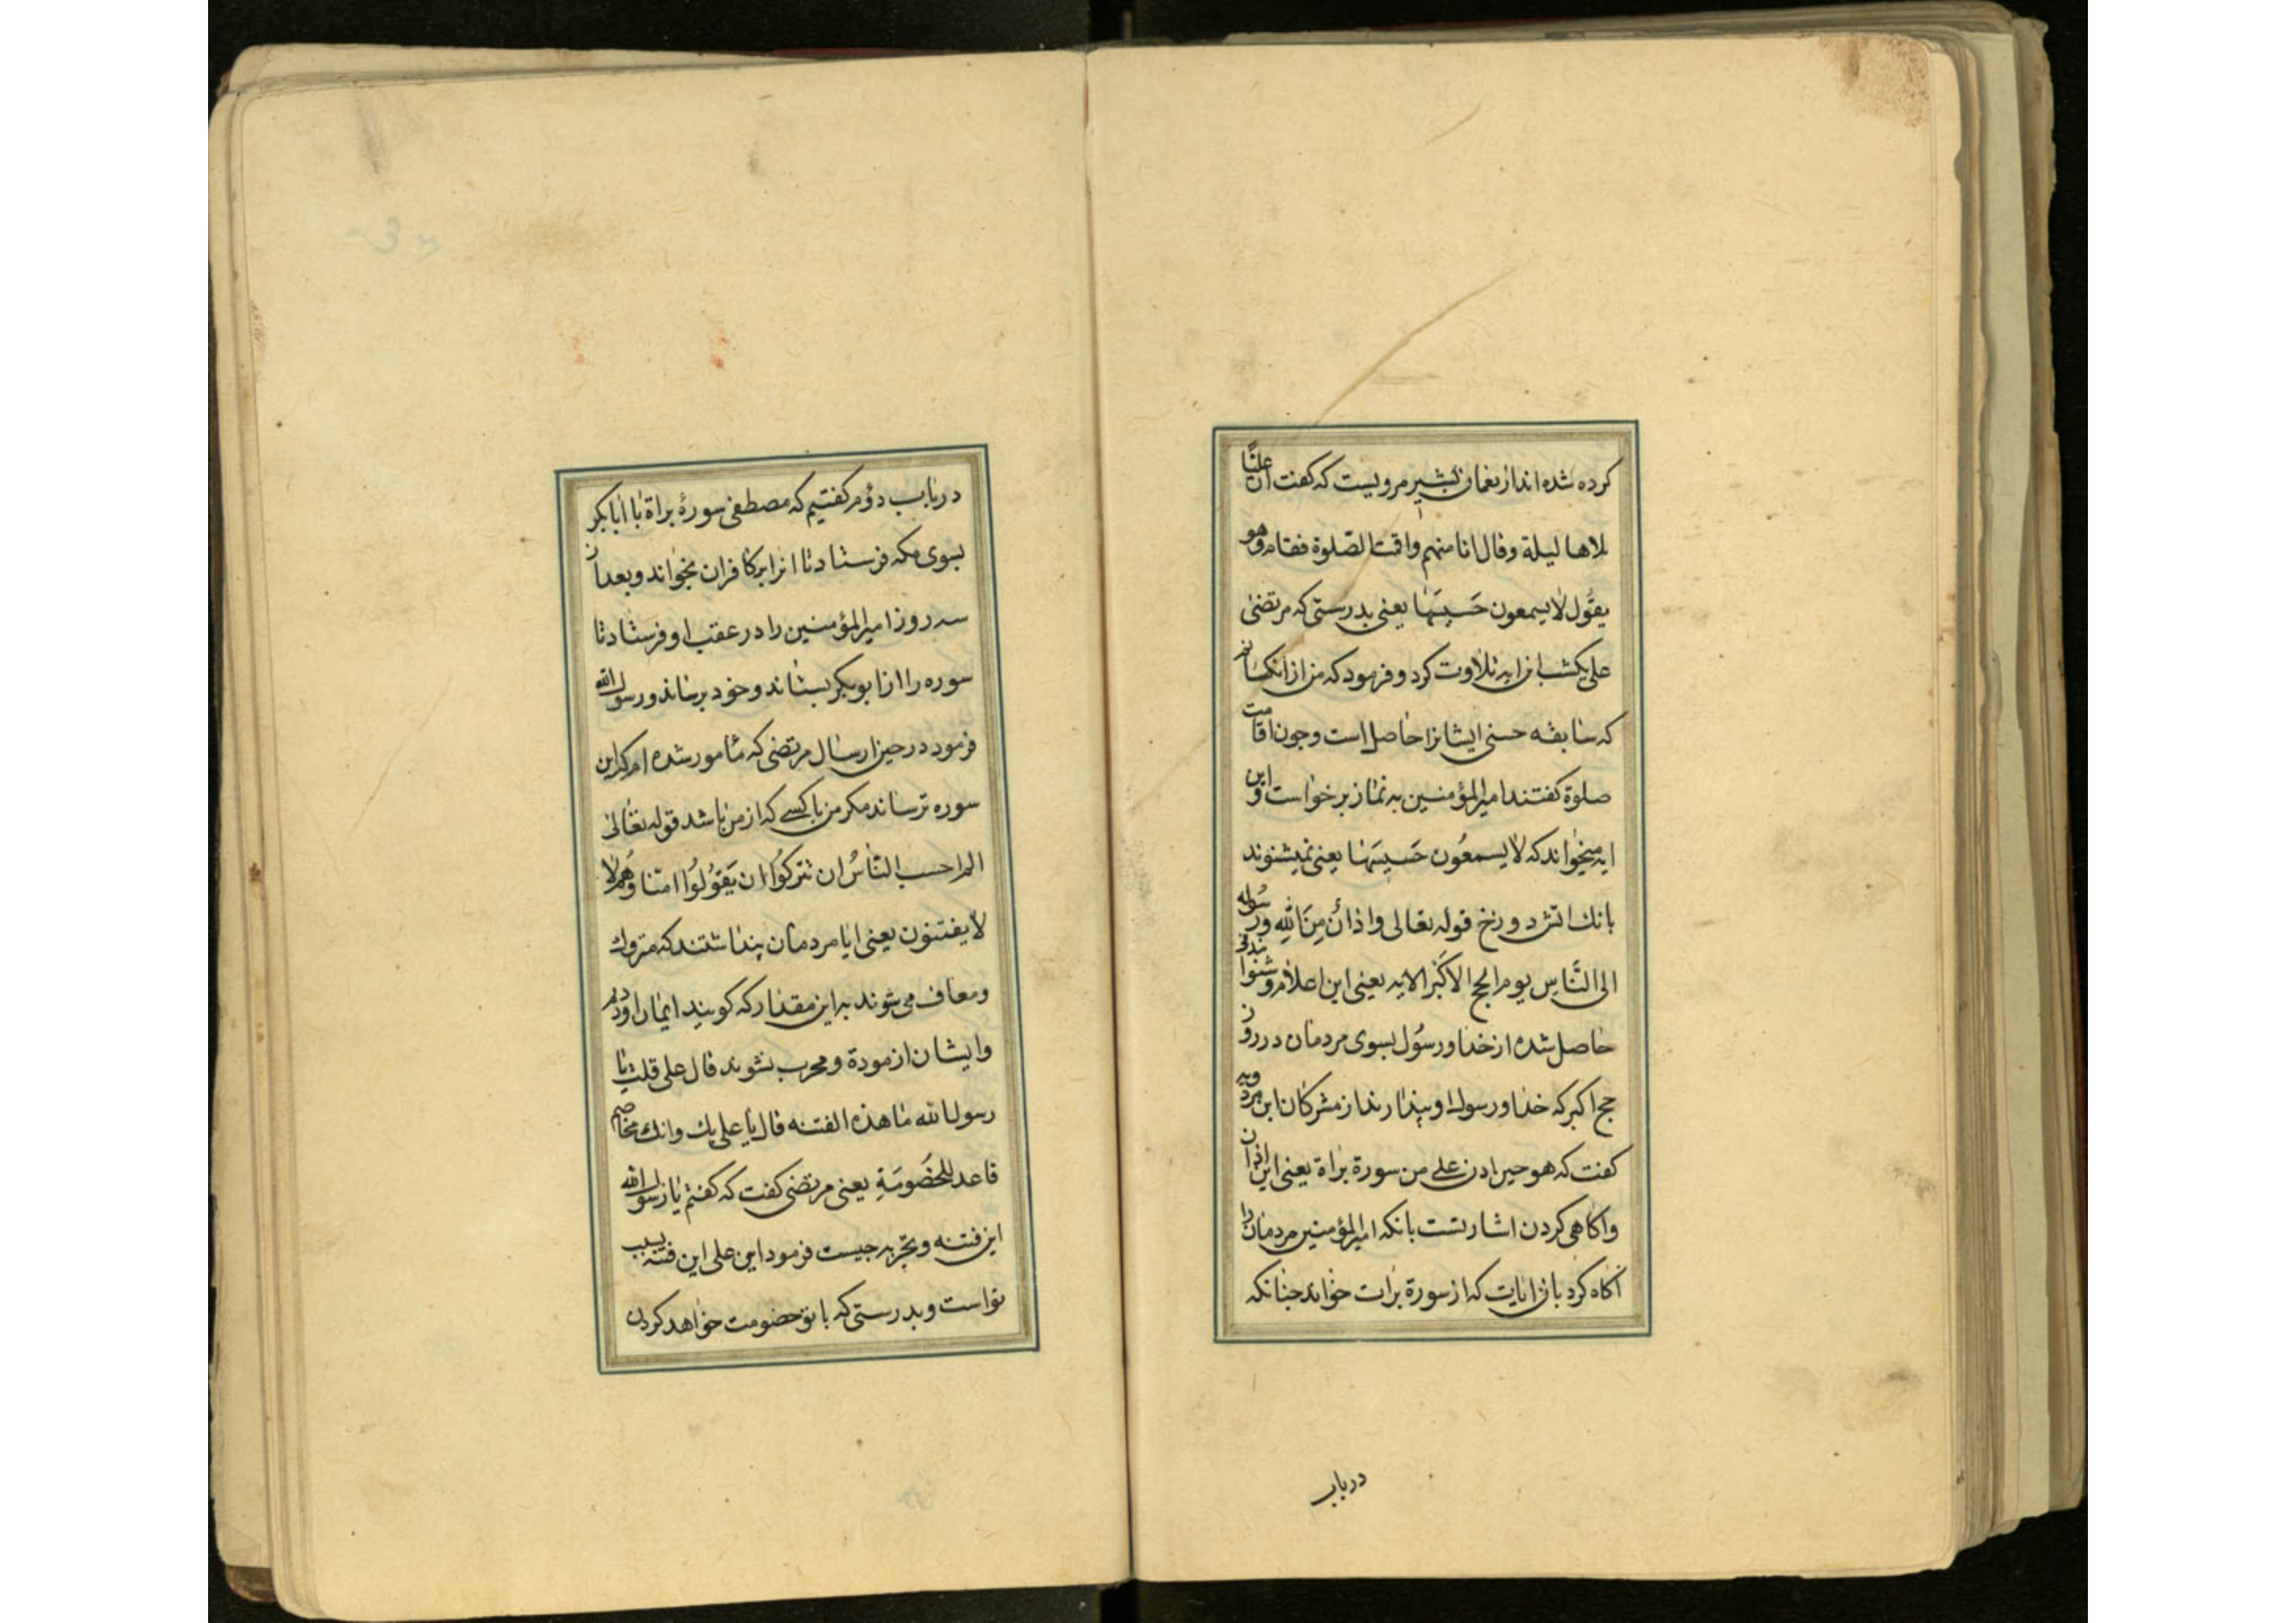 کرده شده‌اند از نعمان بشیر مرویست که گفت ان علیّا
تلاها لیلة وقال انا منهم واقمت الصّلوة فقام وهو
یقول لا یسمعون حَسیسَها یعنی بدرستی که مرتضی
علی یکشب این ایه تلاوت کرد و فرمود که من از آنکسانم
که سابقه حسنی ایشانرا حاصل است وچون اقامت
صلوة گفتند امیرالمؤمنین به نماز برخواست و این
ایه میخواند که لا یسمعُون حَسیسَها یعنی نمیشنوند
بانك اتش دوزخ قوله تعالی واذانٌ مِنَ اللهِ ورَسُوله
الی النَّاسِ یوم الحج الاکبَر الایه یعنی این اعلام وشنوا
حاصل شده از خدا ورسُول بسوی مردمان در روز
حج اکبر که خدا ورسول او بیزارند از مشرکان ابن مردویه
گفت که هو حین اذن علی من سورة براة یعنی این اذان
واکاهی کردن اشارتست بانکه امیرالمؤمنین مردمان را
آکاه کرد باین ایات که از سورة برات خواند چنانکه
درباب
در باب دوّم کفتیم که مصطفی سورۀ براة با ابابکر
بسوی مکه فرستاد تا انرا بر کافران بخواند و بعد از
سه روز امیرالمؤمنین را در عقب او فرستاد تا
سوره را از ابوبکر بستاند وخود برساند ورسول الله
فرمود در حین ارسال مرتضی که مأمور شده‌ام که این
سوره نرساند مکر من یا کسی که از من باشد قوله تعالی
الم احسب النّاسُ ان یترکُوا ان یَقُولُوا امنّا وَهُم لا
لا یفتنون یعنی ایا مردمان پنداشتند که متروك
ومعاف می‌شوند به این مقدار که کویند ایمان اوردیم
وایشان ازموده ومجرب نشوند قال علی قلت یا
رسول الله ما هذه الفتنه قال یا علی بك وانك مخاصم
فاعد للخصُومَةِ یعنی مرتضی کفت که کفتم یا رسول الله
این فتنه و تجربه چیست فرمود ای علی این فتنه بسبب
تواست وبدرستی که با تو خصومت خواهد کردن